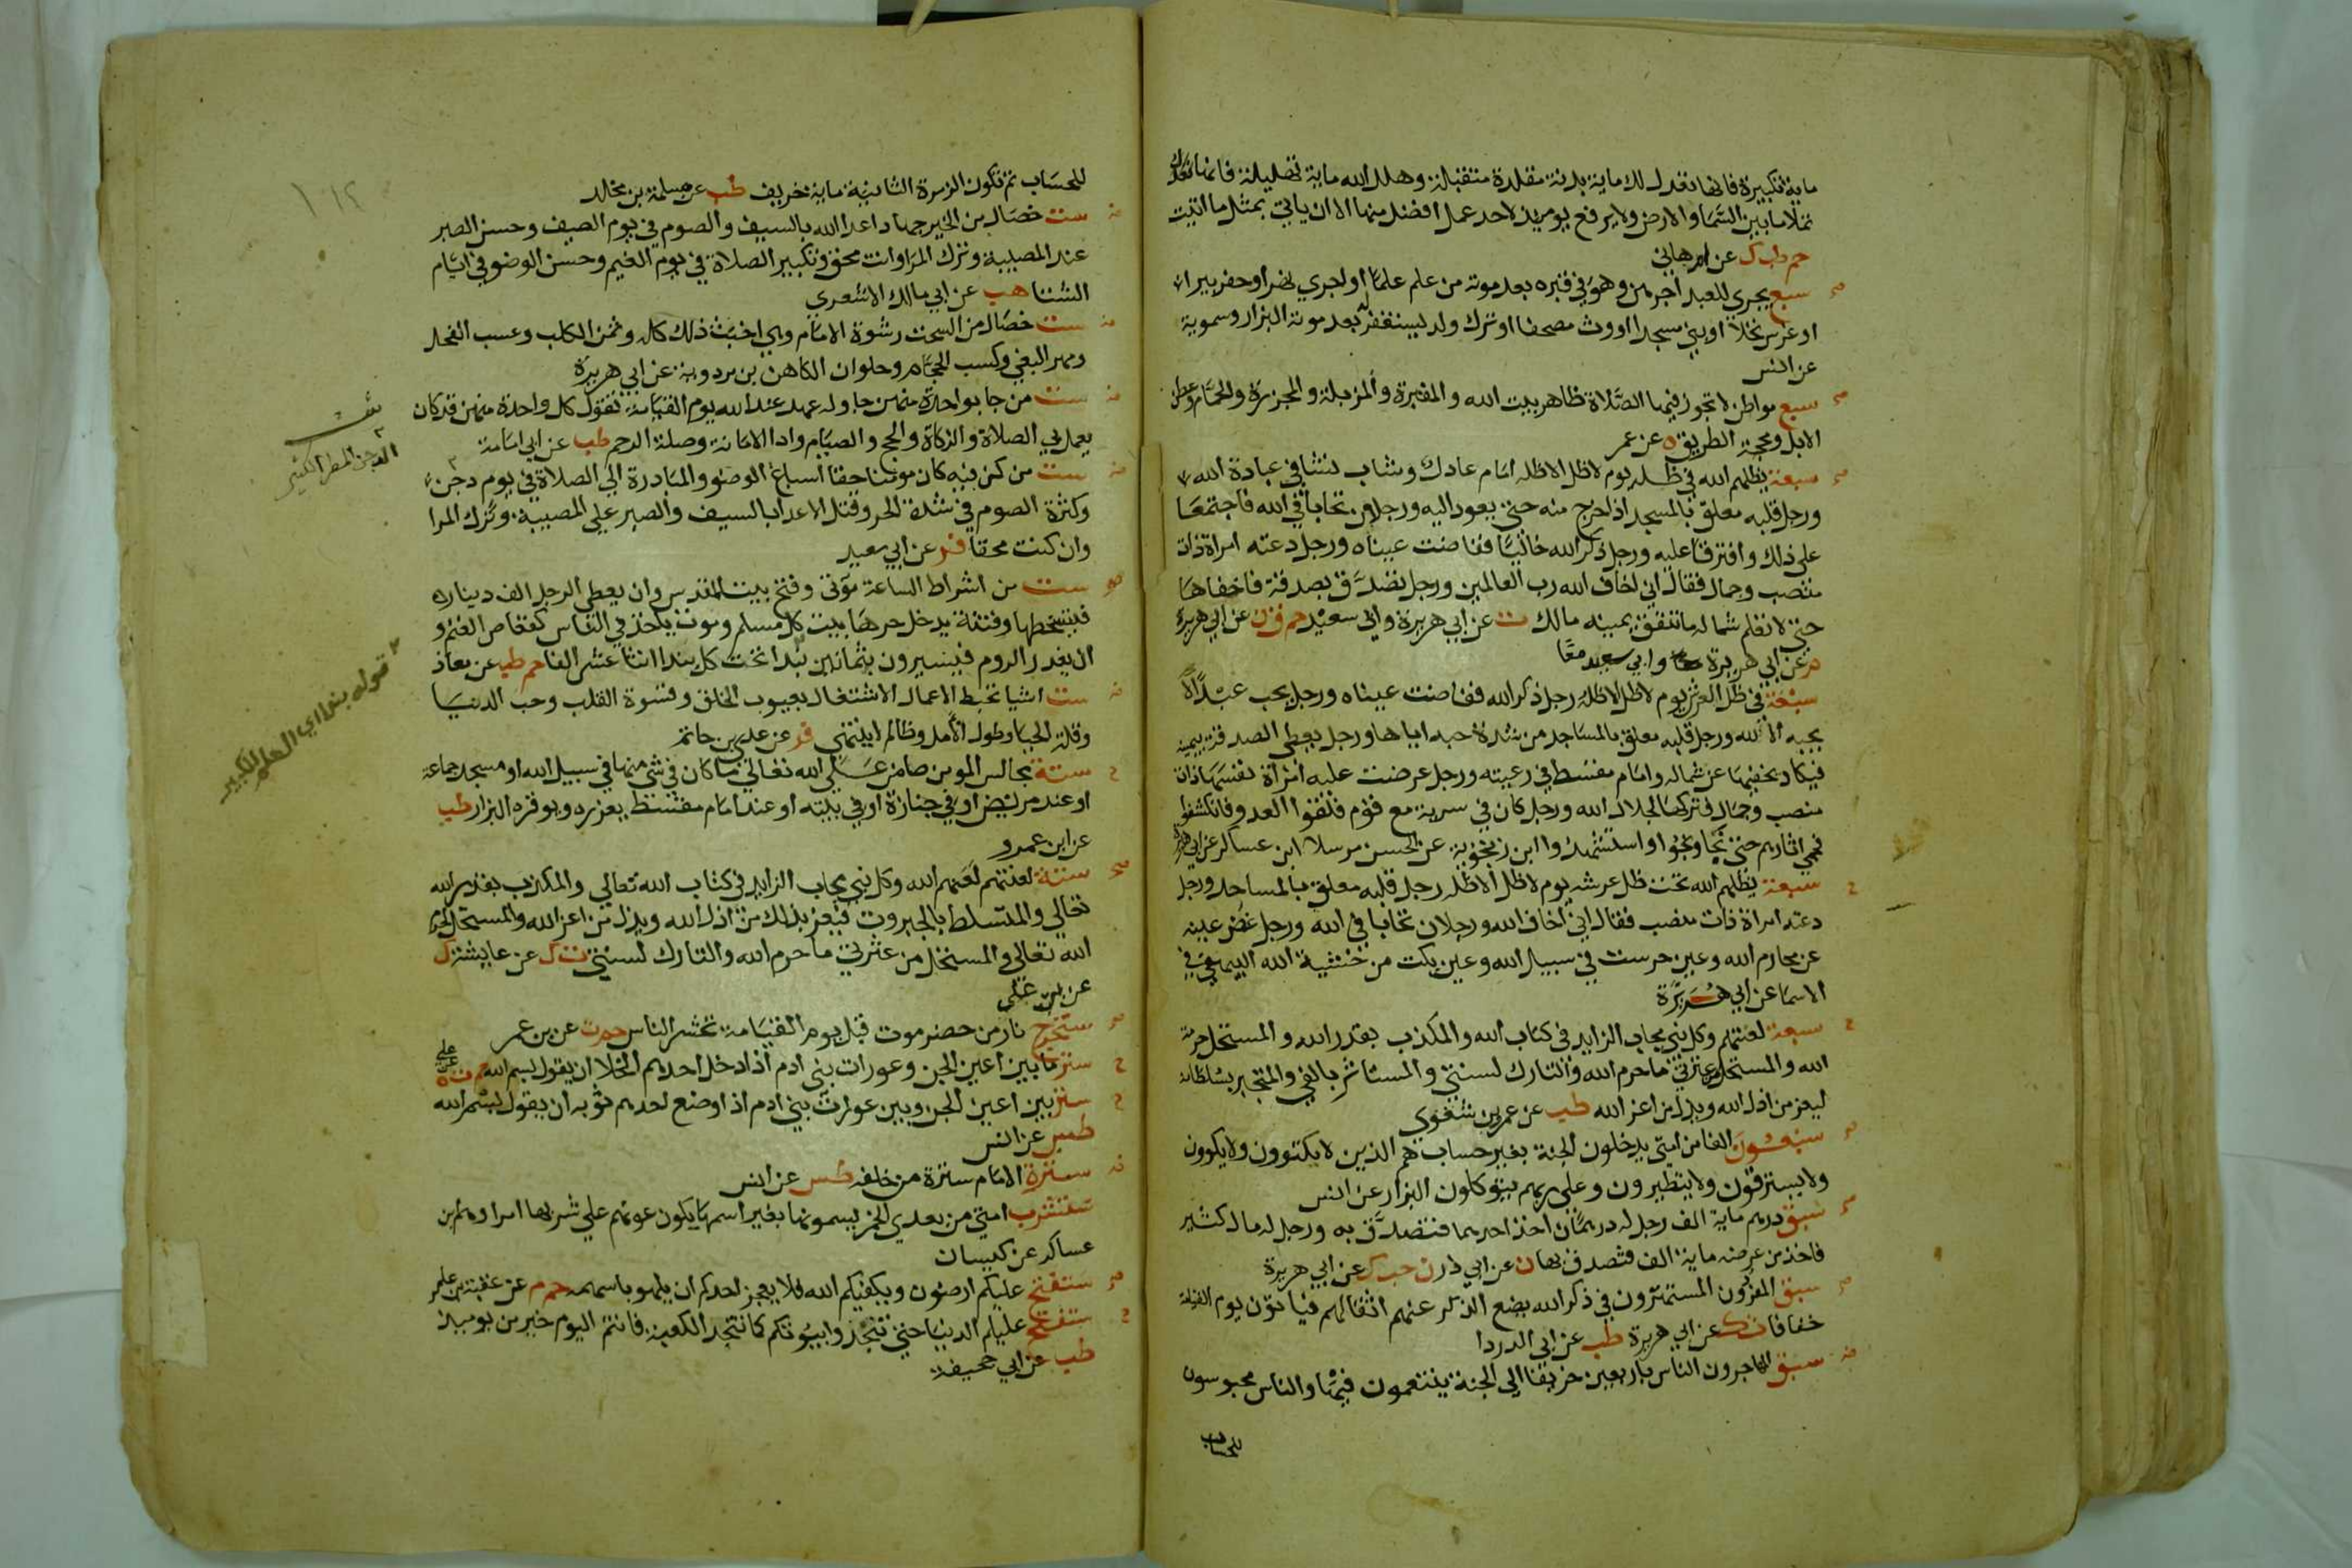 ماية تكبيرة فانها تعدل لك ماية بدنة مقلدة متقبلة وهلل الله ماية تهليلة فانها تعدل
تملا ما بين السما والارض ولا يرفع يوميذ لاحد عمل افضل منها الا ان ياتي بمثل ما اتيت
حم طب ك عن ام هاني
سبع يجري للعبد اجرهن وهو في قبره بعد موته من علم علما او اجري نهرا او حفر بيرا
او غرس نخلا او بني مسجدا او ورث مصحفا او ترك ولد يستغفر له بعد موته البزار وسموية
عن انس
سبع مواطن لا تجوز فيها الصلاة ظاهر بيت الله والمقبرة والمزبلة والمجزرة والحمام وعطن
الابل ومحجة الطريق ه عن عمر
سبعة يظلهم الله في ظله يوم لا ظل الا ظله امام عادل وشاب نشا في عبادة الله
ورجل قلبه معلق بالمسجد اذا خرج منه حتي يعود اليه ورجلان تحابا في الله فاجتمعا
علي ذلك وافترقا عليه ورجل ذكر الله خاليا ففاضت عيناه ورجل دعته امراة ذات
منصب وجمال فقال اني اخاف الله رب العالمين ورجل تصدق بصدقة فاخفاها
حتي لا تعلم شماله ما تنفق يمينه مالك ت عن ابي هريرة وابي سعيد حم ق ن عن ابي هريرة
م عن ابي هريرة وابي سعيد معا
سبعة في ظل العرش يوم لا ظل الا ظله رجل ذكر الله ففاضت عيناه ورجل يحب عبدا لا
يحبه الا لله ورجل قلبه معلق بالمساجد من شدة حبه اياها ورجل يعطي الصدقة بيمينه
فيكاد يخفيها عن شماله وامام مقسط في رعيته ورجل عرضت عليه امراة نفسها ذات
منصب وجمال فتركها لجلال الله ورجل كان في سرية مع قوم فلقوا العدو فانكشفوا
فحمي اثارهم حتي نجا ونجوا او استشهدوا ابن زنجوية عن الحسن مرسلا ابن عساكر عن ابي هريرة
سبعة يظلهم الله تحت ظل عرشه يوم لا ظل الا ظله رجل قلبه معلق بالمساجد ورجل
دعته امراة ذات منصب فقال اني اخاف الله ورجلان تحابا في الله ورجل غض عينه
عن محارم الله وعين حرست في سبيل الله وعين بكت من خشية الله البيهقي في
الاسما عن ابي هريرة
سبعة لعنتهم وكل نبي مجاب الزايد في كتاب الله والمكذب بقدر الله والمستحل حرمة
الله والمستحل من عترتي ما حرم الله والتارك لسنتي والمستاثر بالفي والمتجبر بسلطانه
ليعز من اذل الله ويذل من اعز الله طب عن عمرو بن شغوي
سبعون الفا من امتي يدخلون الجنة بغير حساب هم الذين لا يكتوون ولا يكوون
ولا يسترقون ولا يتطيرون وعلي ربهم يتوكلون البزار عن انس
سبق درهم ماية الف رجل له درهمان اخذ احدهما فتصدق به ورجل له مال كثير
فاخذ من عرضه ماية الف فتصدق بها ن عن ابي ذر ن حب ك عن ابي هريرة
سبق المفردون المستهترون في ذكر الله يضع الذكر عنهم اثقالهم فياتون يوم القيامة
خفافا ت ك عن ابي هريرة طب عن ابي الدردا
سبق المهاجرون الناس باربعين خريفا الي الجنة يتنعمون فيها والناس محبوسون
للحساب
للحساب ثم تكون الزمرة الثانية ماية خريف طب عن مسلمة بن مخلد
ست خصال من الخير جهاد اعدا الله بالسيف والصوم في يوم الصيف وحسن الصبر
عند المصيبة وترك المرا وانت محق وتبكير الصلاة في يوم الغيم وحسن الوضو في ايام
الشتا هب عن ابي مالك الاشعري
ست خصال من السحت رشوة الامام وهي اخبث ذلك كله وثمن الكلب وعسب الفحل
ومهر البغي وكسب الحجام وحلوان الكاهن بن مردوية عن ابي هريرة
ست من جا بواحدة منهن جا وله عهد عند الله يوم القيامة تقول كل واحدة منهن قد كان
يعمل بي الصلاة والزكاة والحج والصيام وادا الامانة وصلة الرحم طب عن ابي امامة
ست من كن فيه كان مومنا حقا اسباغ الوضو والمبادرة الي الصلاة في يوم دجن
وكثرة الصوم في شدة الحر وقتل الاعدا بالسيف والصبر علي المصيبة وترك المرا
وان كنت محقا فر عن ابي سعيد
ست من اشراط الساعة موتي وفتح بيت المقدس وان يعطي الرجل الف دينار
فيتسخطها وفتنة يدخل حرها بيت كل مسلم وموت ياخذ في الناس كقعاص الغنم و
ان يغدر الروم فيسيرون بثمانين بندا تحت كل بند اثنا عشر الفا حم طب عن معاذ
ست اشيا تحبط الاعمال الاشتغال بعيوب الخلق وقسوة القلب وحب الدنيا
وقلة الحيا وطول الامل وظالم لا ينتهي فر عن عدي بن حاتم
ستة مجالس المومن ضامن علي الله تعالي ما كان في شي منها في سبيل الله او مسجد جماعة
او عند مريض او في جنازة او في بيته او عند امام مقسط يعزره ويوقره البزار طب
عن ابن عمرو
ستة لعنتهم لعنهم الله وكل نبي مجاب الزايد في كتاب الله تعالي والمكذب بقدر الله
تعالي والمتسلط بالجبروت فيعز بذلك من اذل الله ويذل من اعز الله والمستحل لحرم
الله تعالي والمستحل من عترتي ما حرم الله والتارك لسنتي ت ك عن عايشة ك
عن علي
ستخرج نار من حضرموت قبل يوم القيامة تحشر الناس حم ت عن بن عمر
ستر ما بين اعين الجن وعورات بني ادم اذا دخل احدهم الخلا ان يقول بسم الله حم ت ه عن علي
ستر بين اعين الجن وبين عورات بني ادم اذا وضع احدهم ثوبه ان يقول بسم الله
طس عن انس
سترة الامام سترة من خلفه طس عن انس
ستشرب امتي من بعدي الخمر يسمونها بغير اسمها يكون عونهم علي شربها امراوهم بن
عساكر عن كيسان
ستفتح عليكم ارضون ويكفيكم الله فلا يعجز احدكم ان يلهو باسهمه حم م عن عقبة بن عامر
ستفتح عليكم الدنيا حتي تنجدوا بيوتكم كما تنجد الكعبة فانتم اليوم خير من يوميذ
طب عن ابي جحيفة
الدجن المطر الكثير
قوله بندا اي العلم الكبير